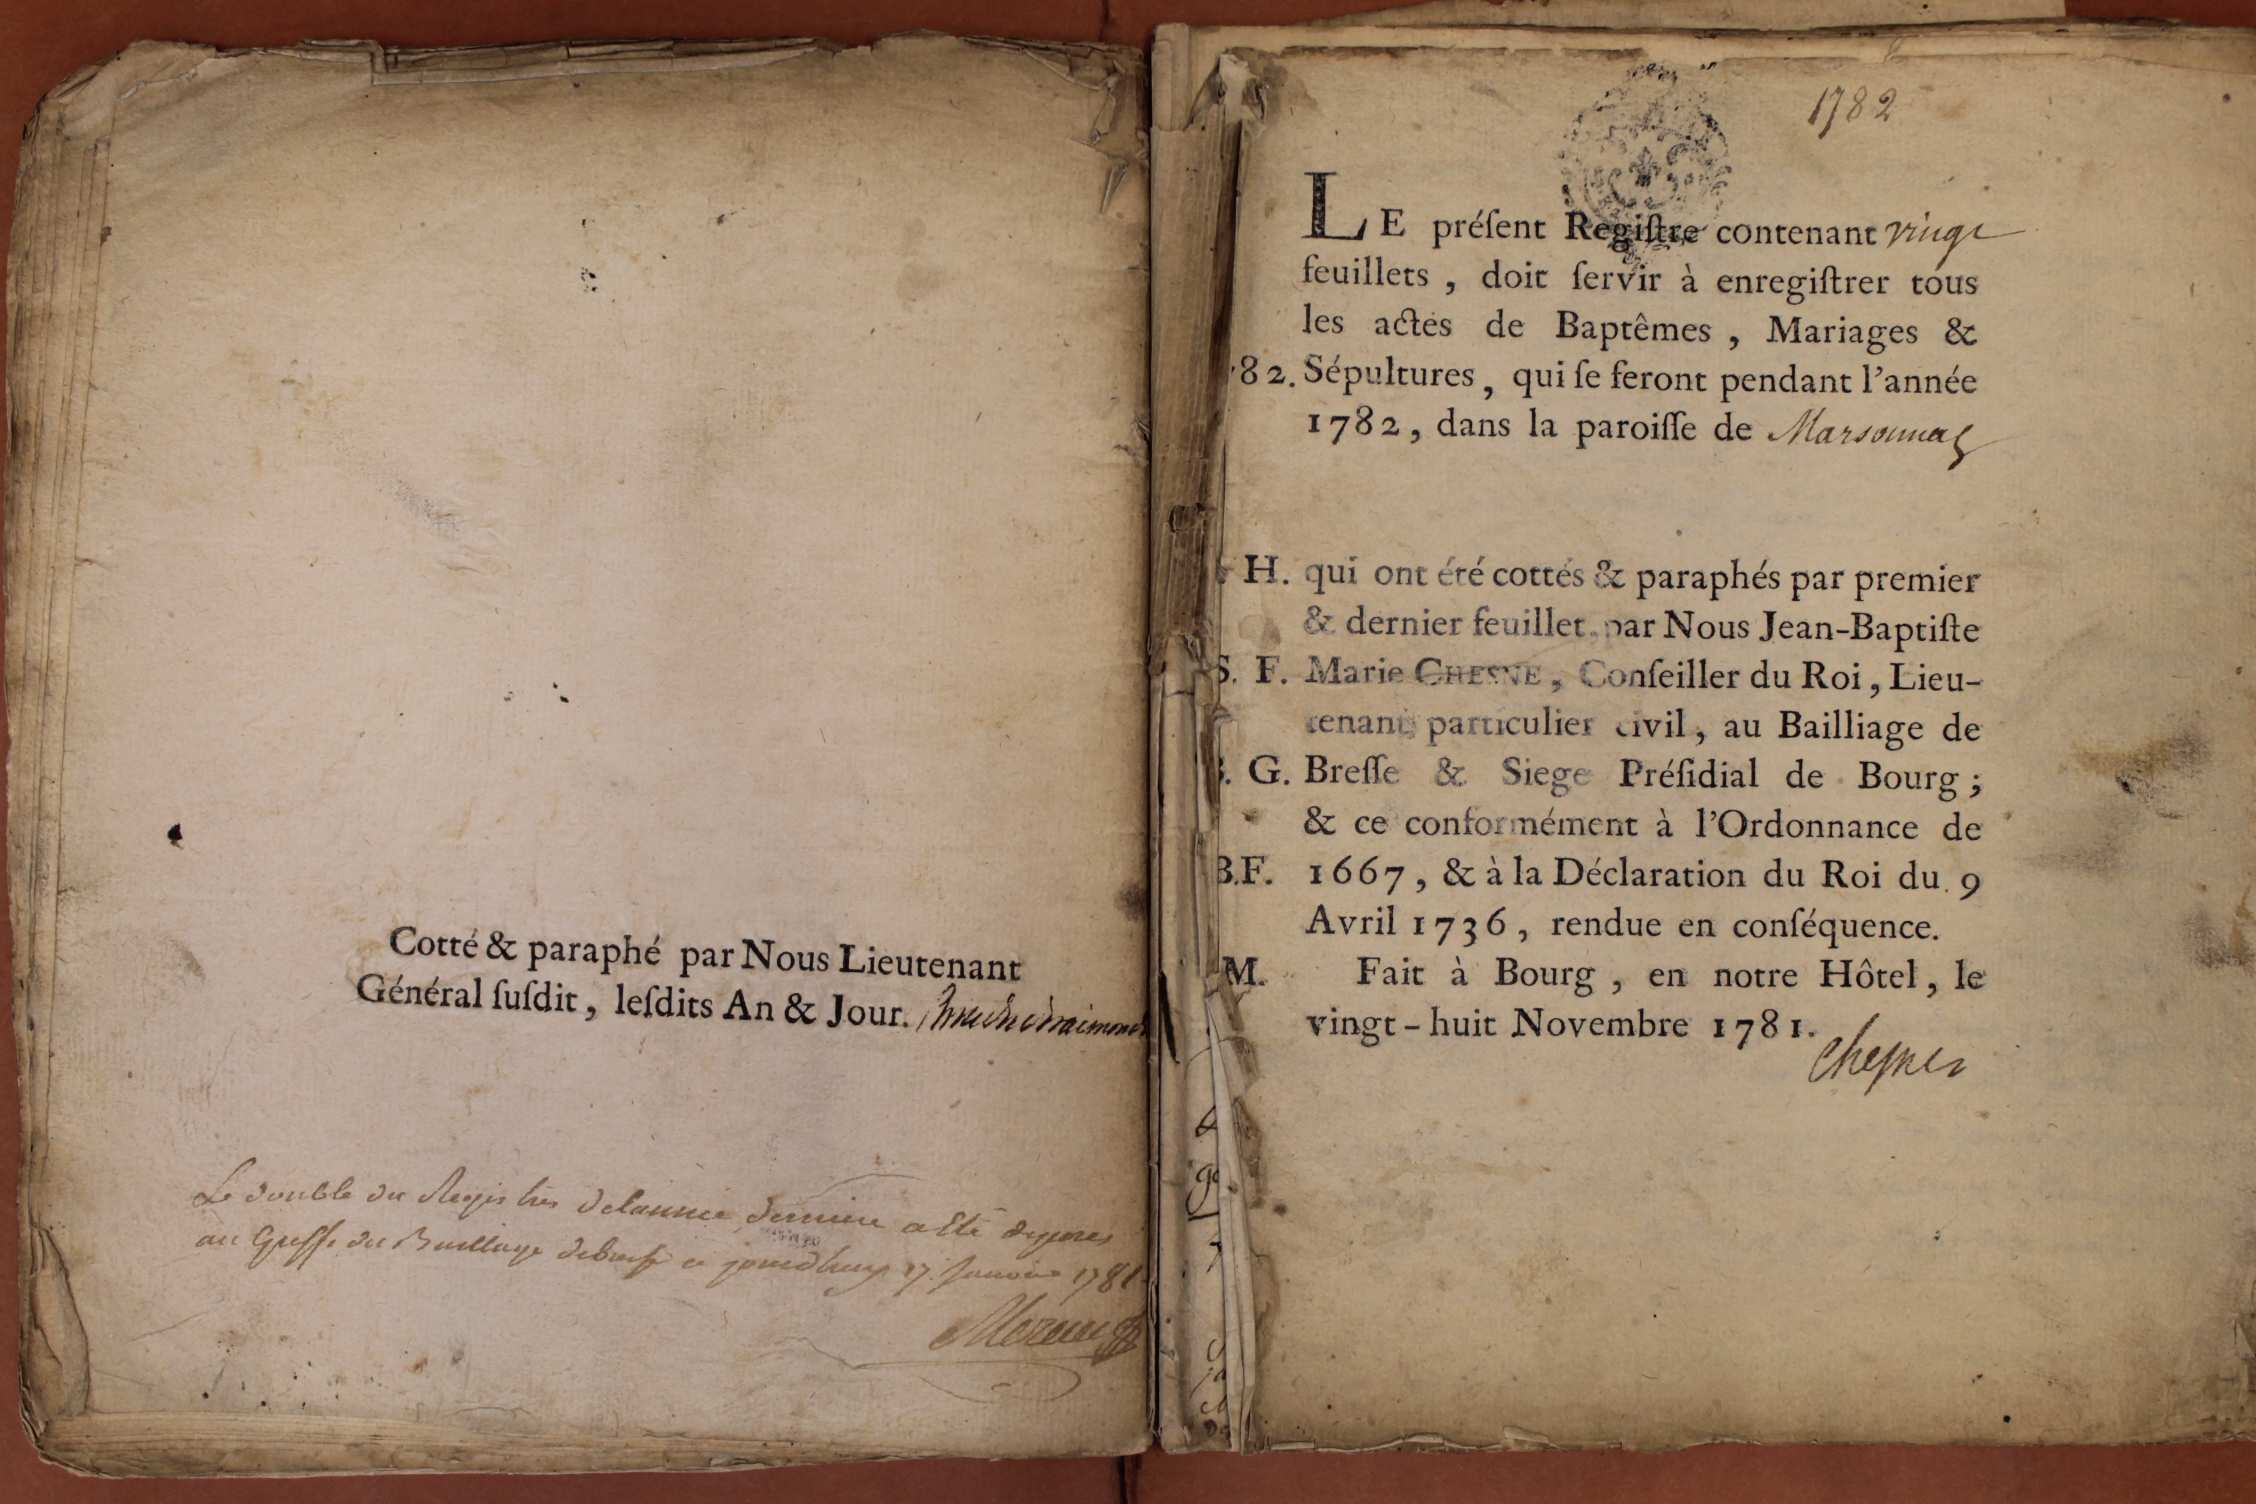 Cotté & paraphé par Nous Lieutenant
Général ſuſdit, leſdits An & Jour.
Le double du Registres delannee derniere a Eté deposes
au Greffe du Bailliage debresse ce jourdhuy 17 Janvier 1781
1782
LE préſent Regiſtre contenant vingt
feuillets, doit ſervir à enregiſtrer tous
les actes de Baptêmes, Mariages &
82. Sépultures, qui ſe feront pendant l'année
1782, dans la paroiſſe de Marsonnas
H. qui ont été cottés & paraphés par premier
& dernier feuillet par Nous Jean-Baptiſte
S. F. Marie CHESNE, Conſeiller du Roi, Lieu-
tenant particulier civil, au Bailliage de
G. Breſſe & Siege Préſidial de Bourg;
& ce conformément à l'Ordonnance de
B.F. 1667, & à la Déclaration du Roi du 9
Avril 1736, rendue en conſéquence.
M. Fait à Bourg, en notre Hôtel, le
vingt-huit Novembre 1781.
Chesne